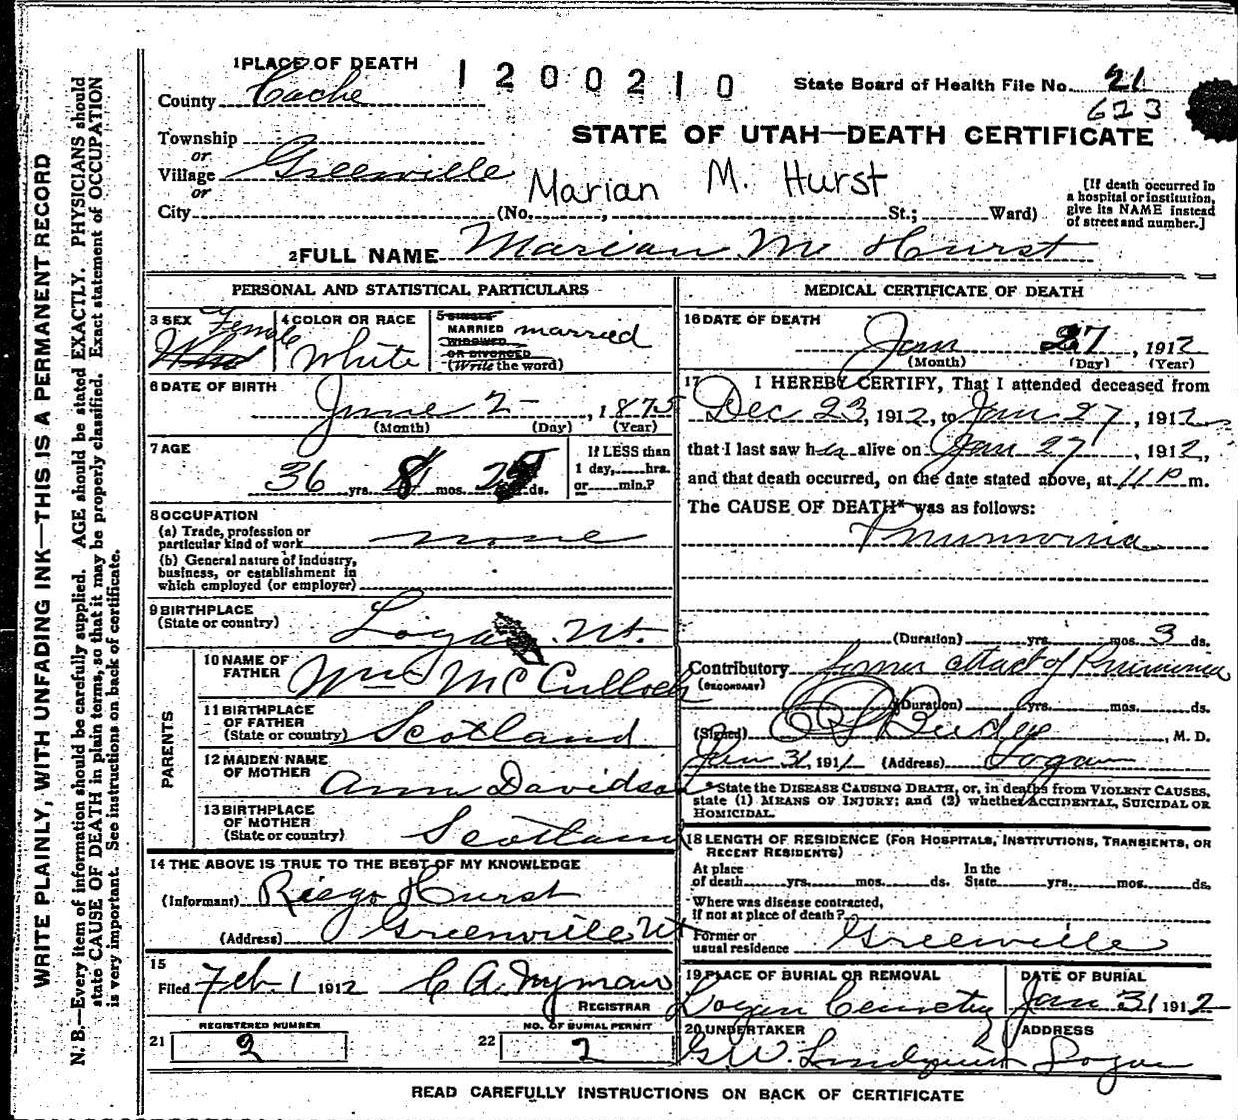 WRITE PLAINLY, WITH UNFADING INK—THIS IS A PERMANENT RECORD
N. B.—Every item of information should be carefully supplied. AGE should be stated EXACTLY. PHYSICIANS should
state CAUSE OF DEATH in plain terms, so that it may be properly classified. Exact statement of OCCUPATION
is very important. See instructions on back of certificate.
1 PLACE OF DEATH
1200210
State Board of Health File No. 21
623
County Cache
STATE OF UTAH—DEATH CERTIFICATE
Township
or
Village Greenville
or
Marian M. Hurst
City (No. , St.; Ward)
[If death occurred in
a hospital or institution,
give its NAME instead
of street and number.]
2 FULL NAME Marian Mc Hurst
PERSONAL AND STATISTICAL PARTICULARS
3 SEX Female
4 COLOR OR RACE White
5 SINGLE
MARRIED married
WIDOWED
OR DIVORCED
(Write the word)
6 DATE OF BIRTH
June 2 , 1875
(Month) (Day) (Year)
7 AGE
36 yrs. mos. ds.
If LESS than
1 day, hrs.
or min.?
8 OCCUPATION
(a) Trade, profession or
particular kind of work none
(b) General nature of industry,
business, or establishment in
which employed (or employer)
9 BIRTHPLACE
(State or country) Logan Ut.
PARENTS
10 NAME OF
FATHER Wm McCulloch
11 BIRTHPLACE
OF FATHER
(State or country) Scotland
12 MAIDEN NAME
OF MOTHER Ann Davidson
13 BIRTHPLACE
OF MOTHER
(State or country) Scotland
14 THE ABOVE IS TRUE TO THE BEST OF MY KNOWLEDGE
(Informant) Riego Hurst
(Address) Greenville Ut
15
Filed Feb 1 1912 C A Nyman
REGISTRAR
REGISTERED NUMBER
21 2
NO. OF BURIAL PERMIT
22 2
MEDICAL CERTIFICATE OF DEATH
16 DATE OF DEATH
Jan 27 , 1912
(Month) (Day) (Year)
17 I HEREBY CERTIFY, That I attended deceased from
Dec 23, 1912, to Jan 27, 1912
that I last saw her alive on Jan 27, 1912,
and that death occurred, on the date stated above, at 11 P m.
The CAUSE OF DEATH* was as follows:
Pnumonia
(Duration) yrs. mos. 3 ds.
Contributory former attack of Pnumonia
(SECONDARY)
(Duration) yrs. mos. ds.
(Signed) Budge, M. D.
Jan 31, 1911 (Address) Logan
*State the DISEASE CAUSING DEATH, or, in deaths from VIOLENT CAUSES,
state (1) MEANS OF INJURY; and (2) whether ACCIDENTAL, SUICIDAL OR
HOMICIDAL.
18 LENGTH OF RESIDENCE (FOR HOSPITALS, INSTITUTIONS, TRANSIENTS, OR
RECENT RESIDENTS)
At place
of death yrs. mos. ds.
In the
State yrs. mos. ds.
Where was disease contracted,
if not at place of death?
Former or
usual residence Greenville
19 PLACE OF BURIAL OR REMOVAL
Logan Cemetry
DATE OF BURIAL
Jan 31 1912
20 UNDERTAKER
G W. Lindquist
ADDRESS
Logan
READ CAREFULLY INSTRUCTIONS ON BACK OF CERTIFICATE